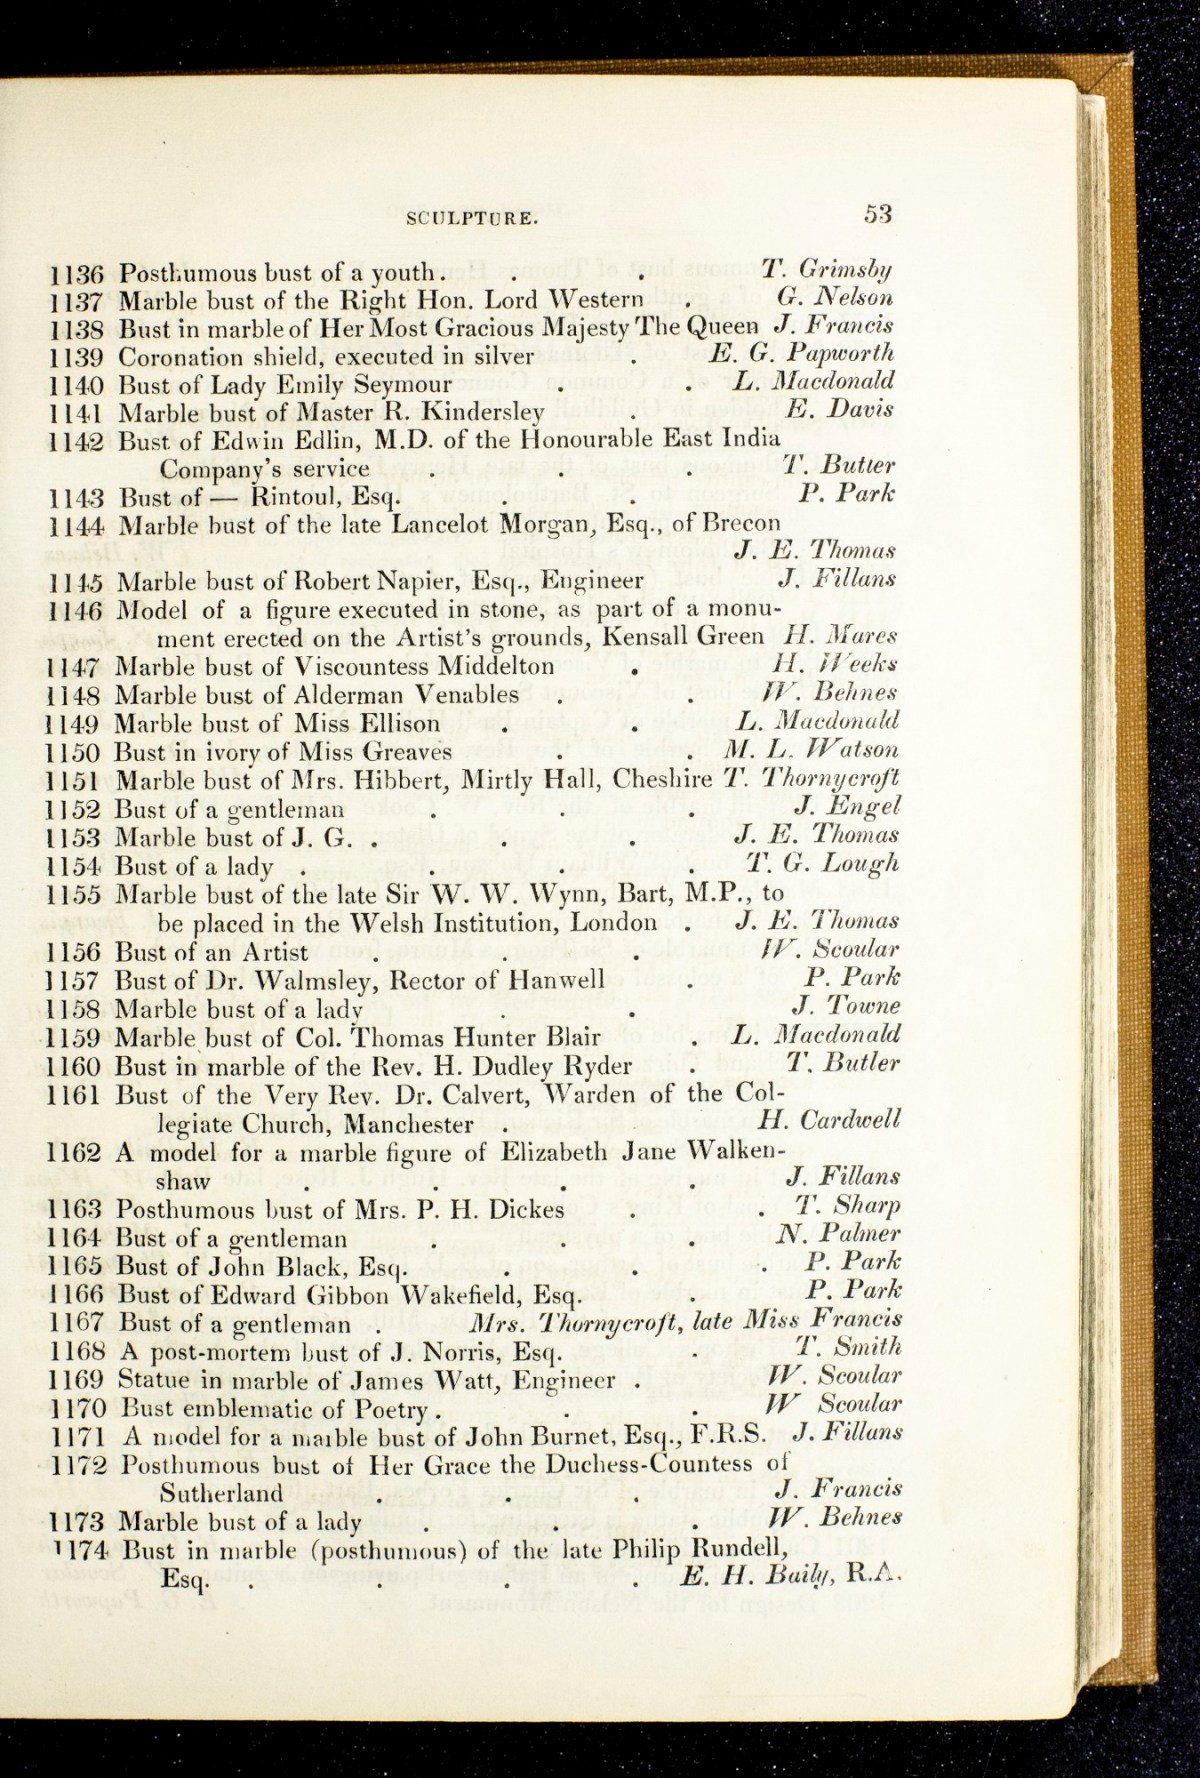 SCULPTURE. 53
1136 Posthumous bust of a youth . . . T. Grimsby
1137 Marble bust of the Right Hon. Lord Western . G. Nelson
1138 Bust in marble of Her Most Gracious Majesty The Queen J. Francis
1139 Coronation shield, executed in silver . E. G. Papworth
1140 Bust of Lady Emily Seymour . . L. Macdonald
1141 Marble bust of Master R. Kindersley . E. Davis
1142 Bust of Edwin Edlin, M.D. of the Honourable East India
Company's service . . . T. Butler
1143 Bust of — Rintoul, Esq. . . P. Park
1144 Marble bust of the late Lancelot Morgan, Esq., of Brecon
J. E. Thomas
1145 Marble bust of Robert Napier, Esq., Engineer J. Fillans
1146 Model of a figure executed in stone, as part of a monu-
ment erected on the Artist's grounds, Kensall Green H. Mares
1147 Marble bust of Viscountess Middelton . H. Weeks
1148 Marble bust of Alderman Venables . . W. Behnes
1149 Marble bust of Miss Ellison . . L. Macdonald
1150 Bust in ivory of Miss Greaves . . M. L. Watson
1151 Marble bust of Mrs. Hibbert, Mirtly Hall, Cheshire T. Thornycroft
1152 Bust of a gentleman . . . J. Engel
1153 Marble bust of J. G. . . . J. E. Thomas
1154 Bust of a lady . . . . T. G. Lough
1155 Marble bust of the late Sir W. W. Wynn, Bart, M.P., to
be placed in the Welsh Institution, London . J. E. Thomas
1156 Bust of an Artist . . . W. Scoular
1157 Bust of Dr. Walmsley, Rector of Hanwell . P. Park
1158 Marble bust of a lady . . J. Towne
1159 Marble bust of Col. Thomas Hunter Blair . L. Macdonald
1160 Bust in marble of the Rev. H. Dudley Ryder . T. Butler
1161 Bust of the Very Rev. Dr. Calvert, Warden of the Col-
legiate Church, Manchester . . H. Cardwell
1162 A model for a marble figure of Elizabeth Jane Walken-
shaw . . . . J. Fillans
1163 Posthumous bust of Mrs. P. H. Dickes . . T. Sharp
1164 Bust of a gentleman . . . N. Palmer
1165 Bust of John Black, Esq. . . . P. Park
1166 Bust of Edward Gibbon Wakefield, Esq. . P. Park
1167 Bust of a gentleman . Mrs. Thornycroft, late Miss Francis
1168 A post-mortem bust of J. Norris, Esq. . T. Smith
1169 Statue in marble of James Watt, Engineer . W. Scoular
1170 Bust emblematic of Poetry . . . W Scoular
1171 A model for a marble bust of John Burnet, Esq., F.R.S. J. Fillans
1172 Posthumous bust of Her Grace the Duchess-Countess of
Sutherland . . . J. Francis
1173 Marble bust of a lady . . . W. Behnes
1174 Bust in marble (posthumous) of the late Philip Rundell,
Esq. . . . . E. H. Baily, R.A.